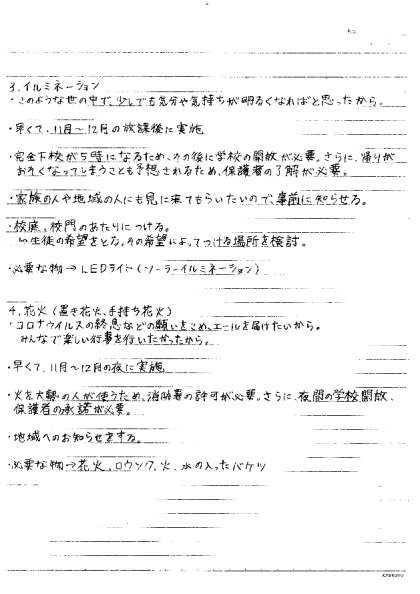 3. イルミネーション
・このような世の中で、少しでも気分や気持ちが明るくなればと思ったから。
・早くて、11月〜12月の放課後に実施
・完全下校が5時になるため、その後に学校の開放が必要。さらに、帰りが
おそくなってしまうことも予想されるため、保護者の了解が必要。
・家族の人や地域の人にも見に来てもらいたいので、事前に知らせる。
・校庭、校門のあたりにつける。
↳生徒の希望をとる。その希望によってつける場所を検討。
・必要な物→LEDライト(ソーラーイルミネーション)
4. 花火(置き花火、手持ち花火)
・コロナウイルスの終息などの願いをこめ、エールを届けたいから。
みんなで楽しい行事を行いたかったから。
・早くて、11月〜12月の夜に実施
・火を大勢の人が使うため、消防署の許可が必要。さらに、夜間の学校開放、
保護者の承諾が必要。
・地域へのお知らせをする。
・必要な物→花火、ロウソク、火、水の入ったバケツ